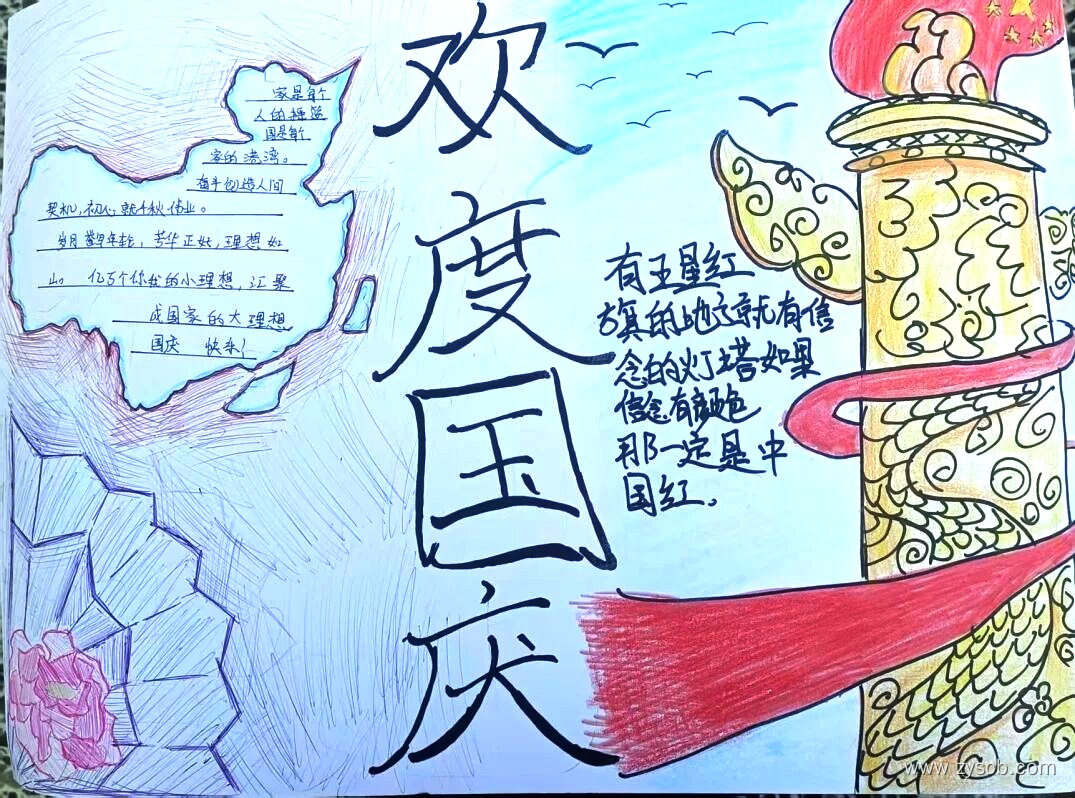 欢度国庆
家是每个
人的摇篮
国是每个
家的港湾。
奋斗创造人间
契机,初心就千秋伟业。
岁月誉写年轮,芳华正好,理想如
山。 亿万个你我的小理想,汇聚
成国家的大理想
国庆 快乐!
有五星红
旗的地方就有信
念的灯塔如果
信念有颜色
那一定是中
国红.
www.zysob.com